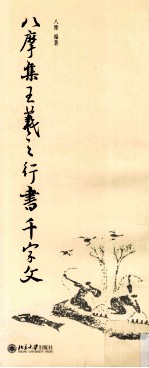 八摩 编著
八摩集王羲之行書千字文
北京大学出版社
PEKING UNIVERSITY PRESS